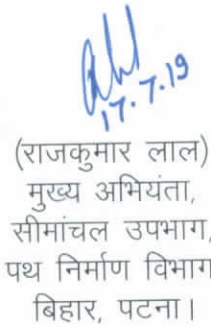 17.7.19
(राजकुमार लाल)
मुख्य अभियंता,
सीमांचल उपभाग,
पथ निर्माण विभाग
बिहार, पटना।